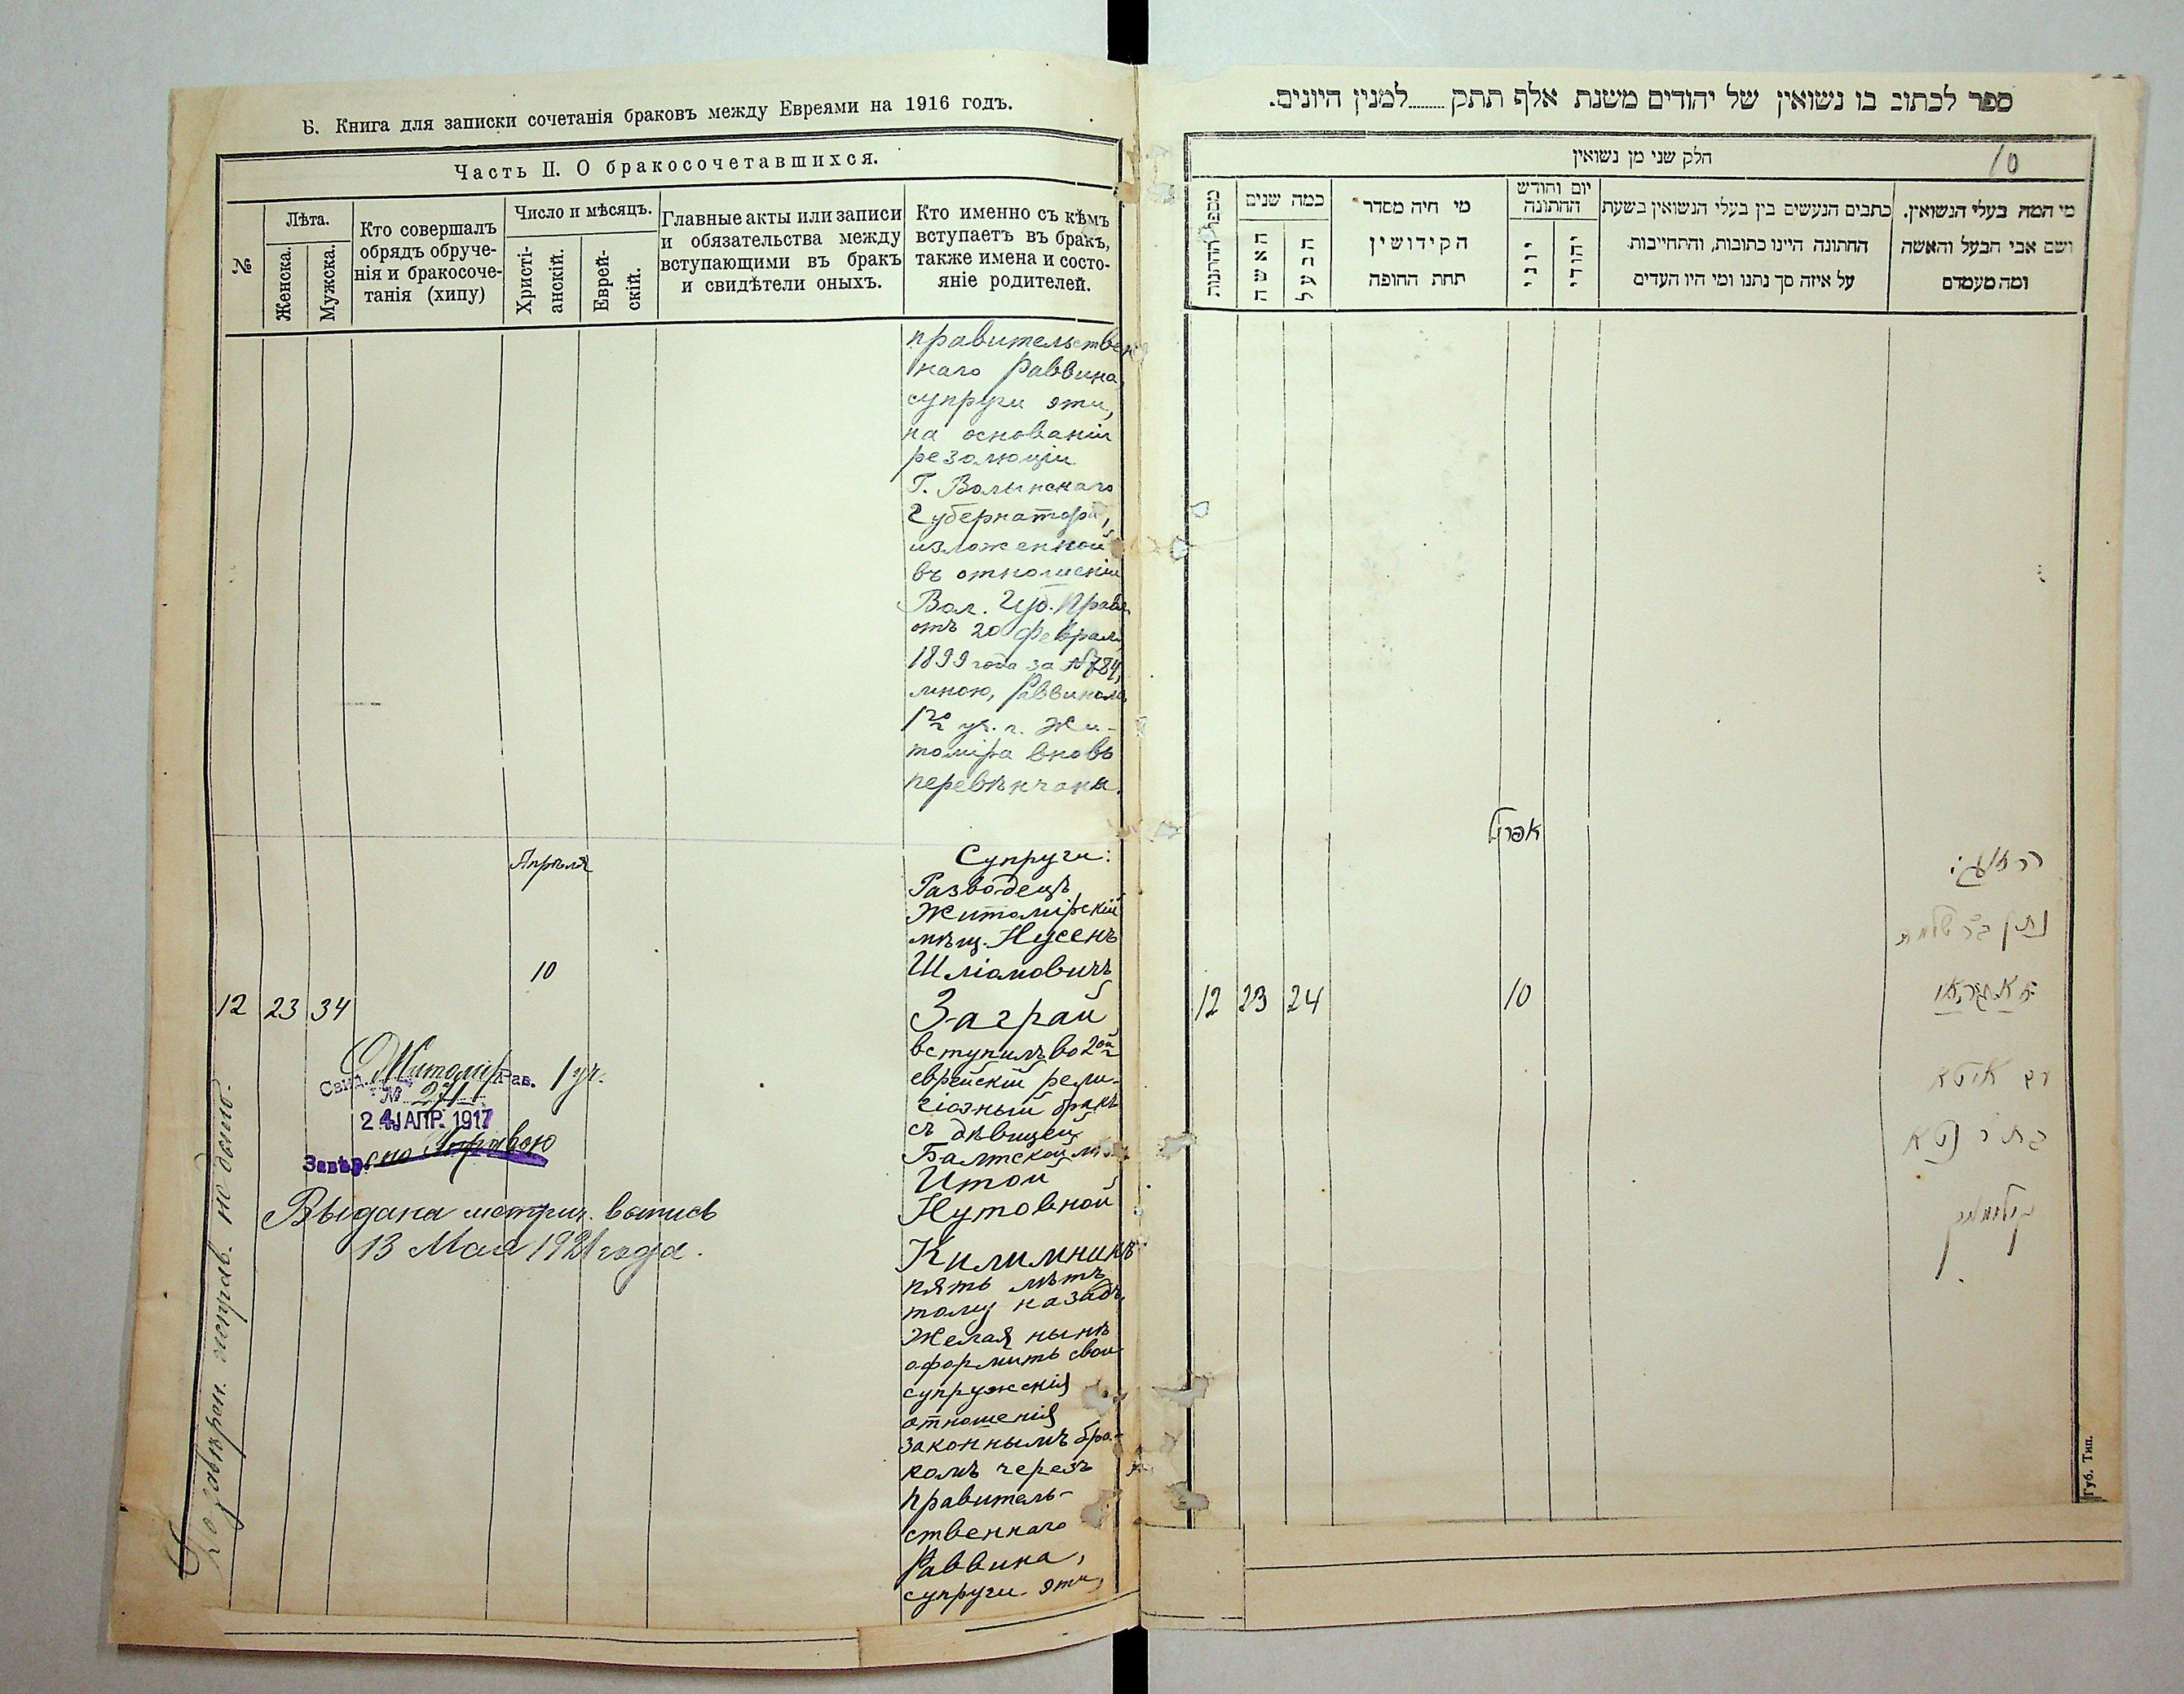 Б. Книга для записки сочетанія браковъ между Евреями на 1916 годъ.
Часть II. О бракосочетавшихся.
№
Лѣта.
Женска.
Мужска.
Кто совершалъ
обрядъ обруче-
нія и бракосоче-
танія (хипу)
Число и мѣсяцъ.
Христі-
анскій.
Еврей-
скій.
Главные акты или записи
и обязательства между
вступающими въ бракъ
и свидѣтели оныхъ.
Кто именно съ кѣмъ
вступаетъ въ бракъ,
также имена и состо-
яніе родителей.
правительствен
наго Раввина,
супруги эти,
на основаніи
резолюціи
Г. Волынскаго
Губернатора,
изложенной
въ отношеніи
Вол. Губ. Правл
отъ 20 Февраля
1899 года за №784,
мною, Раввиномъ
1го уч. г. Жи-
томіра вновь
перевѣнчаны.
Апрѣля
10
12 23 34
Супруги:
Разводецъ
Житомірскій
мѣщ. Нусенъ
Шліомовичъ
Заграй
вступилъ во 2ой
еврейскій рели-
гіозный бракъ
съ дѣвицей
Балтской мѣщ
Итой
Нутовной
Килимникъ
пять лѣтъ
тому назадъ.
Желая нынѣ
оформить свои
супружскія
отношенія
законнымъ бра-
комъ черезъ
правитель-
ственнаго
Раввина,
супруги эти,
Свид. Житомір Рав. 1 уч.
№ 271
24 АПР. 1917
Завѣр.
Выдана метрич. выпись
13 Мая 1921 года.
не было.
ספר לכתוב בו נשואין של יהודים משנת אלף תתק........למנין היונים.
חלק שני מן נשואין
10
מספר החתונות
כמה שנים
האשה
הבעל
מי היה מסדר
הקידושין
תחת החופה
יום וחודש
החתונה
יוני
יהודי
כתבים הנעשים בין בעלי הנשואין בשעת
החתונה היינו כתובות, והתחייבות
על איזה סך נתנו ומי היו העדים
מי המה בעלי הנשואין.
ושם אבי הבעל והאשה
ומה מעמדם
אפריל
12 23 24 10
Губ. Тип.